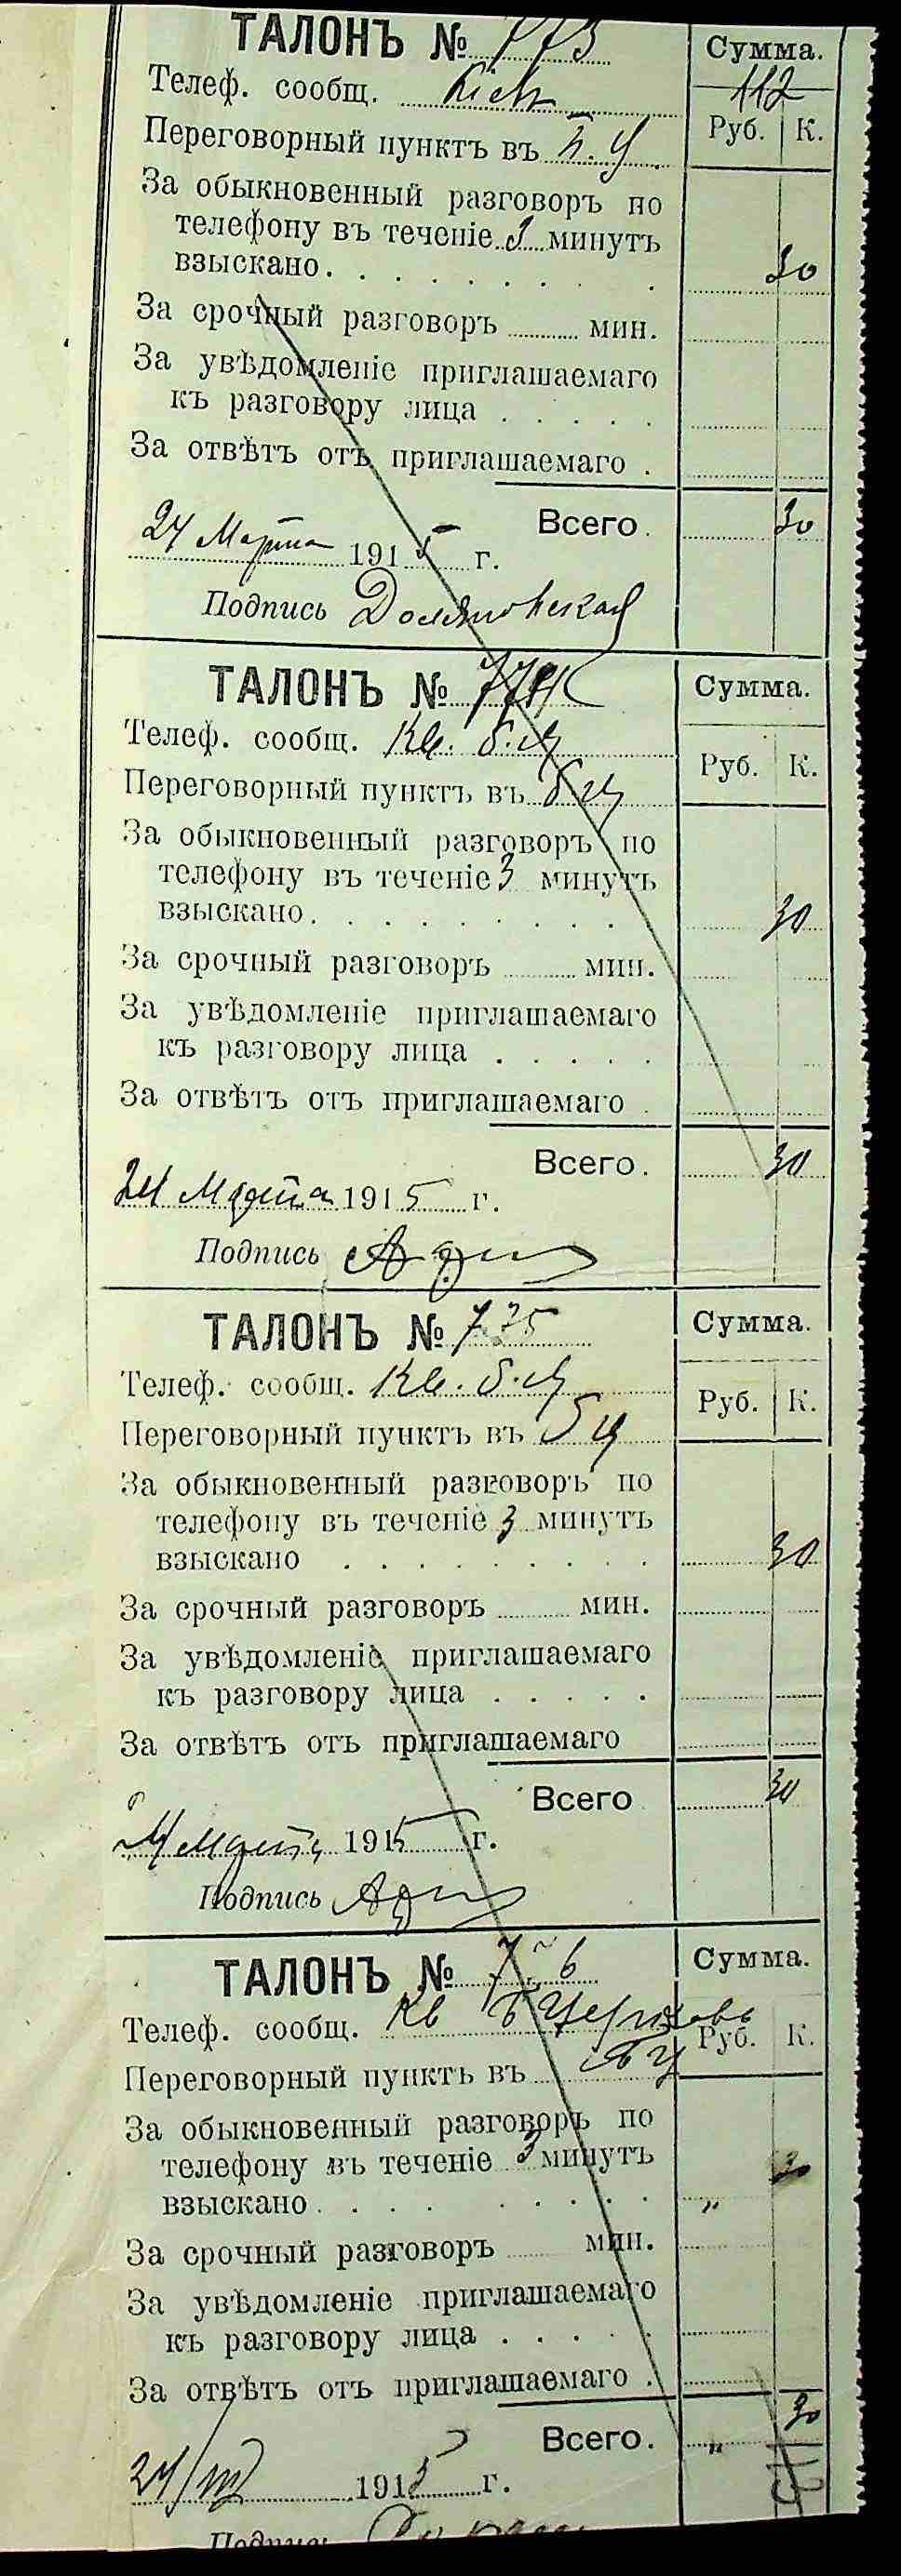 ТАЛОНЪ № 773
Сумма.
Телеф. сообщ. Кіев
112
Руб. К.
Переговорный пунктъ въ Б. Ц.
За обыкновенный разговоръ по
телефону въ теченіе 3 минутъ
взысκано. . . . . . . . . 30
За срочный разговоръ ........ мин.
За увѣдомленіе приглашаемаго
къ разговору лица . . . . .
За отвѣтъ отъ приглашаемаго .
Всего. 30
24 Марта 1915 г.
Подпись
ТАЛОНЪ № 774
Сумма.
Телеф. сообщ. Кв. Б. Ц
Руб. К.
Переговорный пунктъ въ Б Ц
За обыкновенный разговоръ по
телефону въ теченіе 3 минутъ
взыскано. . . . . . . . . 30
За срочный разговоръ ........ мин.
За увѣдомленіе приглашаемаго
къ разговору лица . . . . .
За отвѣтъ отъ приглашаемаго .
Всего. 30
24 Марта 1915 г.
Подпись
ТАЛОНЪ № 775
Сумма.
Телеф. сообщ. Кв. Б. Ц
Руб. К.
Переговорный пунктъ въ Б Ц
За обыкновенный разговоръ по
телефону въ теченіе 3 минутъ
взыскано . . . . . . . . . 30
За срочный разговоръ ........ мин.
За увѣдомленіе приглашаемаго
къ разговору лица . . . . .
За отвѣтъ отъ приглашаемаго
Всего 30
24 Марта 1915 г.
Подпись
ТАЛОНЪ № 776
Сумма.
Телеф. сообщ. Кв Б Церковь
Руб. К.
Переговорный пунктъ въ Б Ц
За обыкновенный разговоръ по
телефону въ теченіе 3 минутъ
взыскано. . . . . . . . . " 30
За срочный разговоръ ........ мин.
За увѣдомленіе приглашаемаго
къ разговору лица . . . . .
За отвѣтъ отъ приглашаемаго .
Всего. " 30
24/III 1915 г.
Подпись